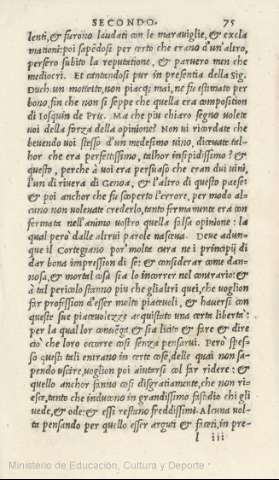 SECONDO. 75
lenti, & furono laudati con le marauiglie, & excla
mationi: poi sapēdosi per certo che erano d'un'altro,
persero subito la reputatione, & paruero men che
mediocri. Et cantandosi pur in presentia della Sig.
Duch. un mottetto, non piacq; mai, ne fu estimato per
bono, fin che non si seppe che quella era composition
di Iosquin de Pris. Ma che piu chiaro segno uolete
uoi della forza della opinione? Non ui ricordate che
beuendo uoi stesso d'un medesimo uino, diceuate tal-
hor che era perfettissimo, talhor insipidissimo? &
questo, perche à uoi era persuaso che eran dui uini,
l'un di riuera di Genoa, & l'altro di questo paese:
& poi anchor che fu scoperto l'errore, per modo al-
cuno non uoleuate crederlo, tanto fermamente era con
fermata nell'animo uostro quella falsa opinione: la
qual però dalle altrui parole nasceua. Deue adun-
que il Cortegiano por molta cura ne i principij di
dar bona impression di se: & considerar come dan-
nosa, & mortal cosa sia lo incorrer nel contrario: &
à tal pericolo stanno piu che gli altri quei, che uoglion
far profession d'esser molto piaceuoli, & hauersi con
queste sue piaceuolezze acquistato una certa liberta:
per la qual lor conuēga & sia licito & fare & dire
ciò che loro occorre cosi senza pensarui. Però spes-
so questi tali entrano in certe cose, delle quai non sa-
pendo uscire, uoglion poi aiutarsi col far ridere: &
quello anchor fanno cosi disgratiamente, che non rie-
sce, tanto che inducono in grandissimo fastidio chi gli
uede, & ode: & essi restano freddissimi. Alcuna uol-
ta pensando per quello esser arguti & faceti, in pre-
l iii
Ministerio de Educación, Cultura y Deporte